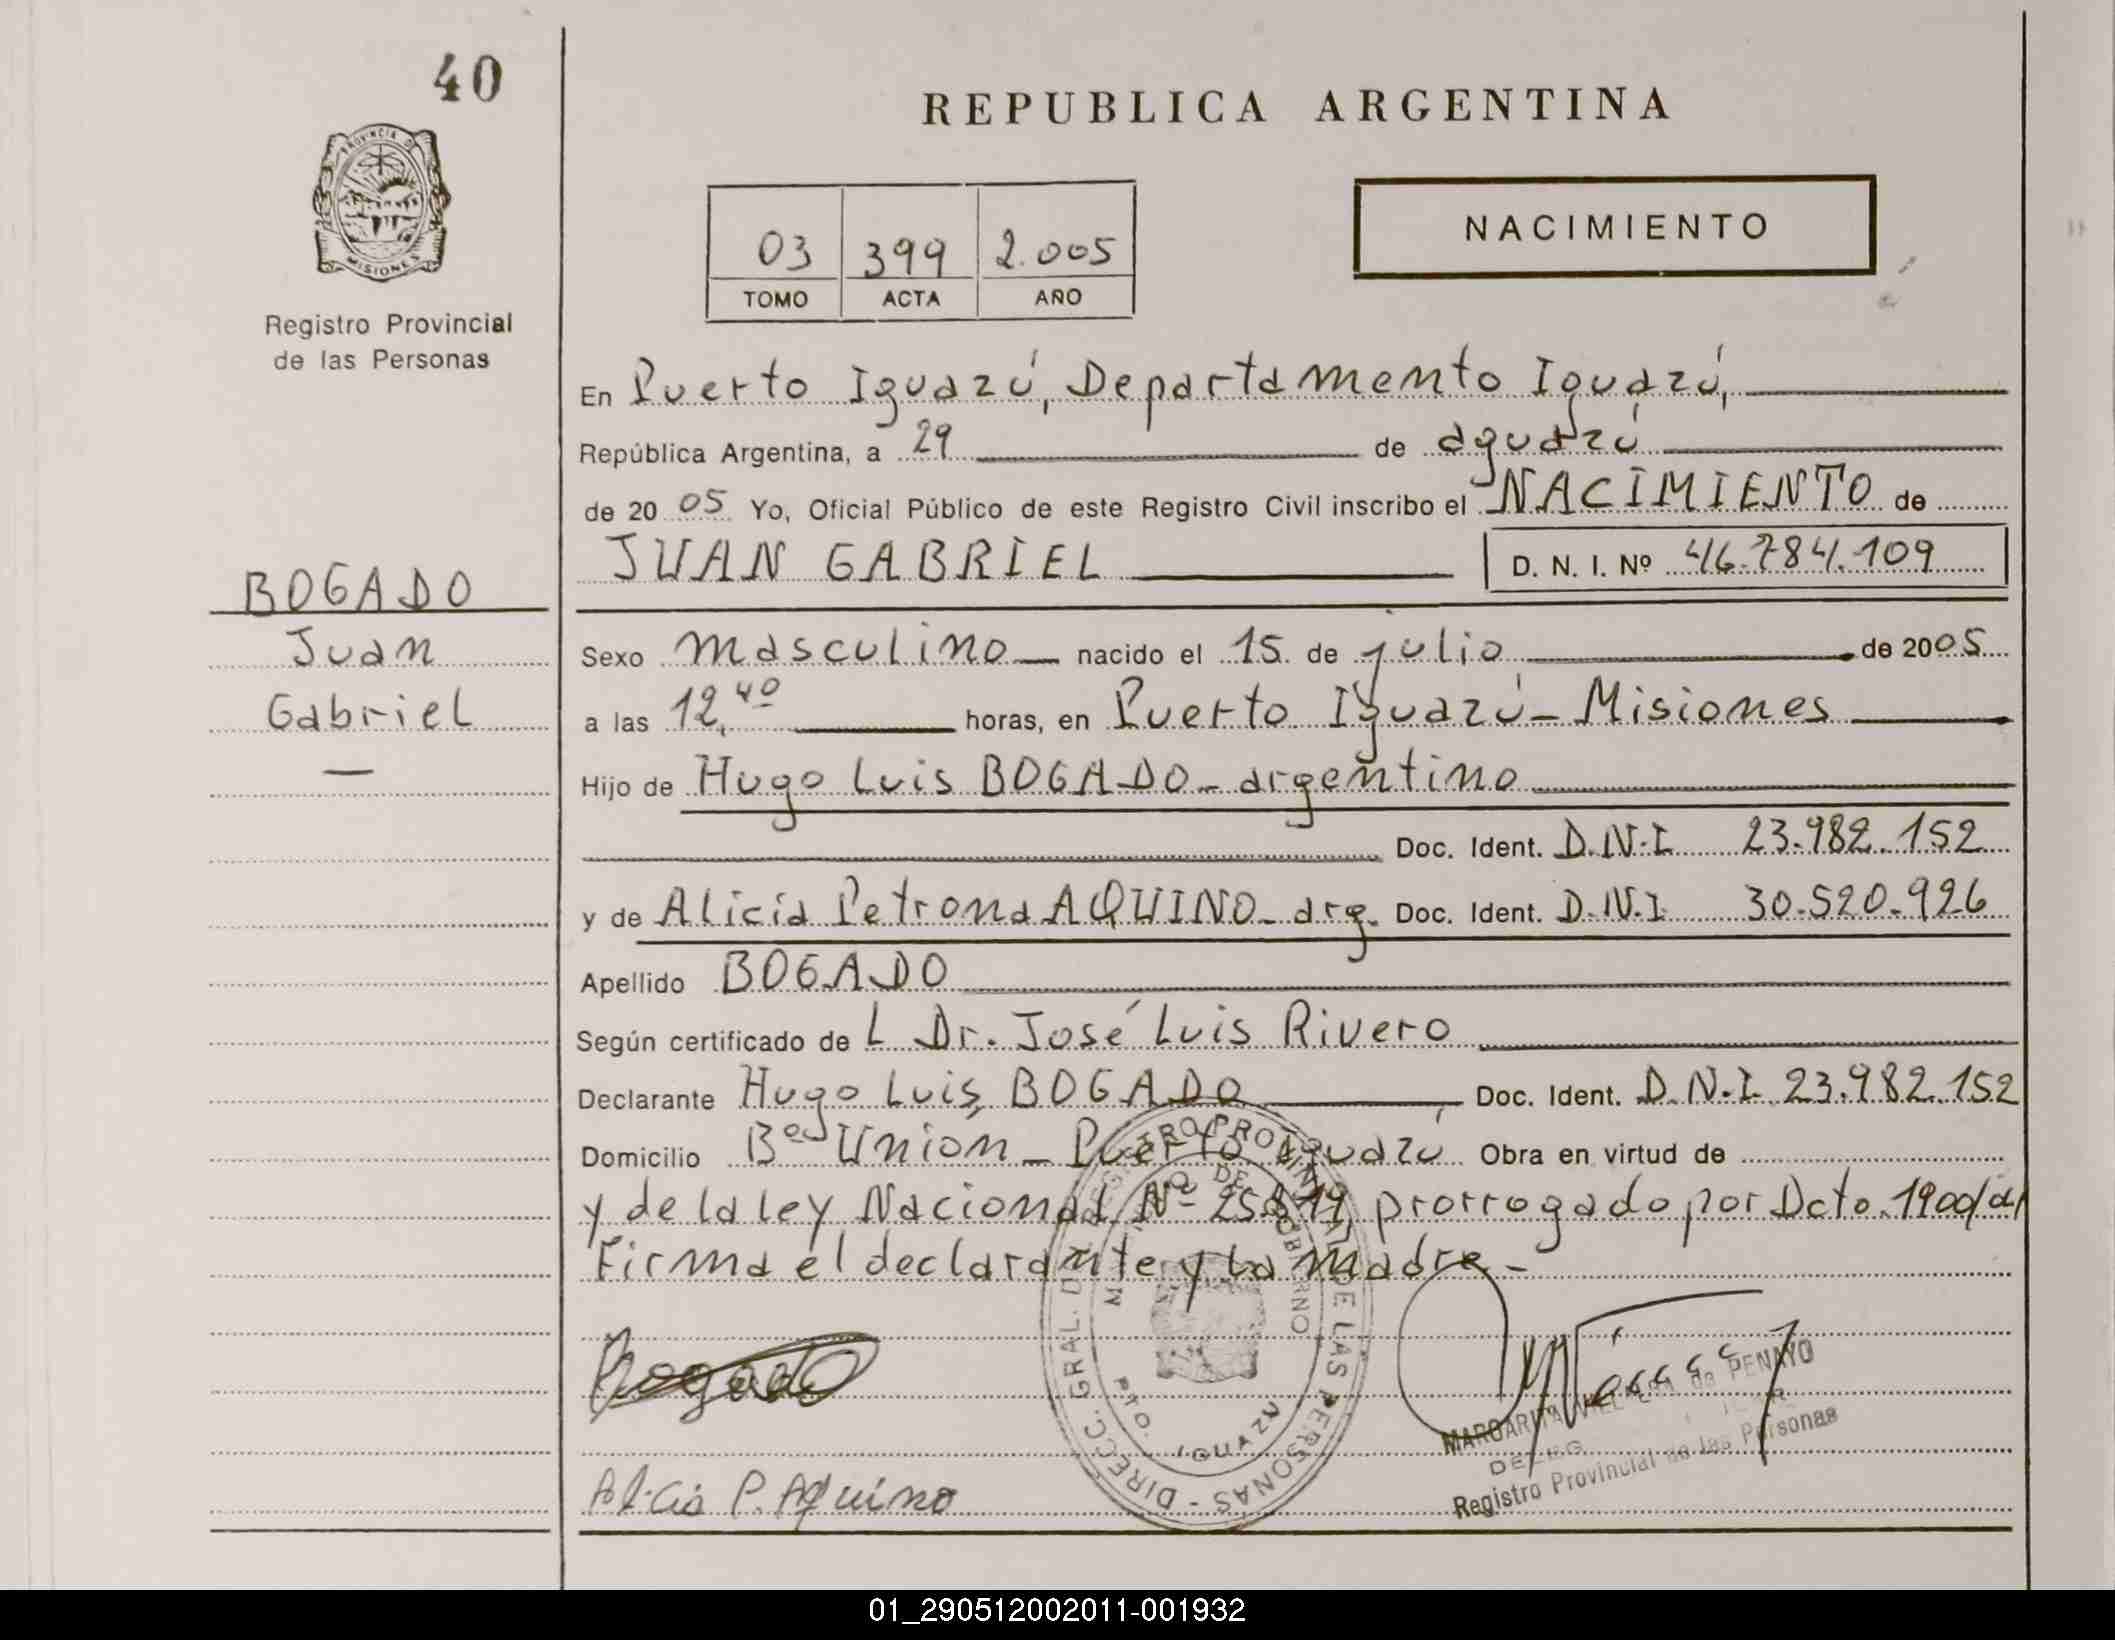 40
REPUBLICA ARGENTINA
PROVINCIA DE
MISIONES
Registro Provincial
de las Personas
03 399 2.005
TOMO ACTA AÑO
NACIMIENTO
En Puerto Iguazú, Departamento Iguazú,
República Argentina, a 29 de aguazú
de 2005 Yo, Oficial Público de este Registro Civil inscribo el NACIMIENTO de
JUAN GABRIEL D. N. I. Nº 46.784.109
BOGADO
Juan
Gabriel
Sexo masculino nacido el 15 de julio de 2005
a las 12,40 horas, en Puerto Iguazú - Misiones
Hijo de Hugo Luis BOGADO - argentino
Doc. Ident. D.N.I 23.982.152
y de Alicia Petrona AQUINO - arg. Doc. Ident. D.N.I 30.520.926
Apellido BOGADO
Según certificado de L Dr. José Luis Rivero
Declarante Hugo Luis BOGADO, Doc. Ident. D.N.I. 23.982.152
Domicilio Bº Unión - Puerto Iguazú Obra en virtud de
y de la ley Nacional Nº 25.819 prorrogado por Dcto. 1900/04
Firma el declarante y la madre -
DIRECC. GRAL. DEL REGISTRO PROVINCIAL DE LAS PERSONAS -
MINISTERIO DE GOBIERNO
PTO. IGUAZU
Bogado
Alicia P. Aquino
MARGARITA de PENAYO
Registro Provincial de las Personas
01_290512002011-001932